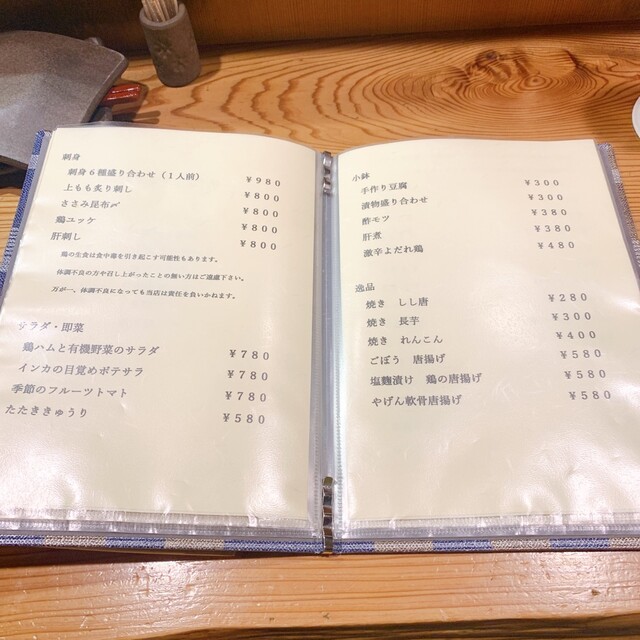 刺身
刺身6種盛り合わせ(1人前) ¥980
上もも炙り刺し ¥800
ささみ昆布〆 ¥800
鶏ユッケ ¥800
肝刺し ¥800
鶏の生食は食中毒を引き起こす可能性もあります。
体調不良の方や召し上がったことの無い方はご遠慮下さい。
万が一、体調不良になっても当店は責任を負いかねます。
サラダ・即菜
鶏ハムと有機野菜のサラダ ¥780
インカの目覚めポテサラ ¥780
季節のフルーツトマト ¥780
たたききゅうり ¥580
小鉢
手作り豆腐 ¥300
漬物盛り合わせ ¥300
酢モツ ¥380
肝煮 ¥380
激辛よだれ鶏 ¥480
逸品
焼き しし唐 ¥280
焼き 長芋 ¥300
焼き れんこん ¥400
ごぼう 唐揚げ ¥580
塩麹漬け 鶏の唐揚げ ¥580
やげん軟骨唐揚げ ¥580